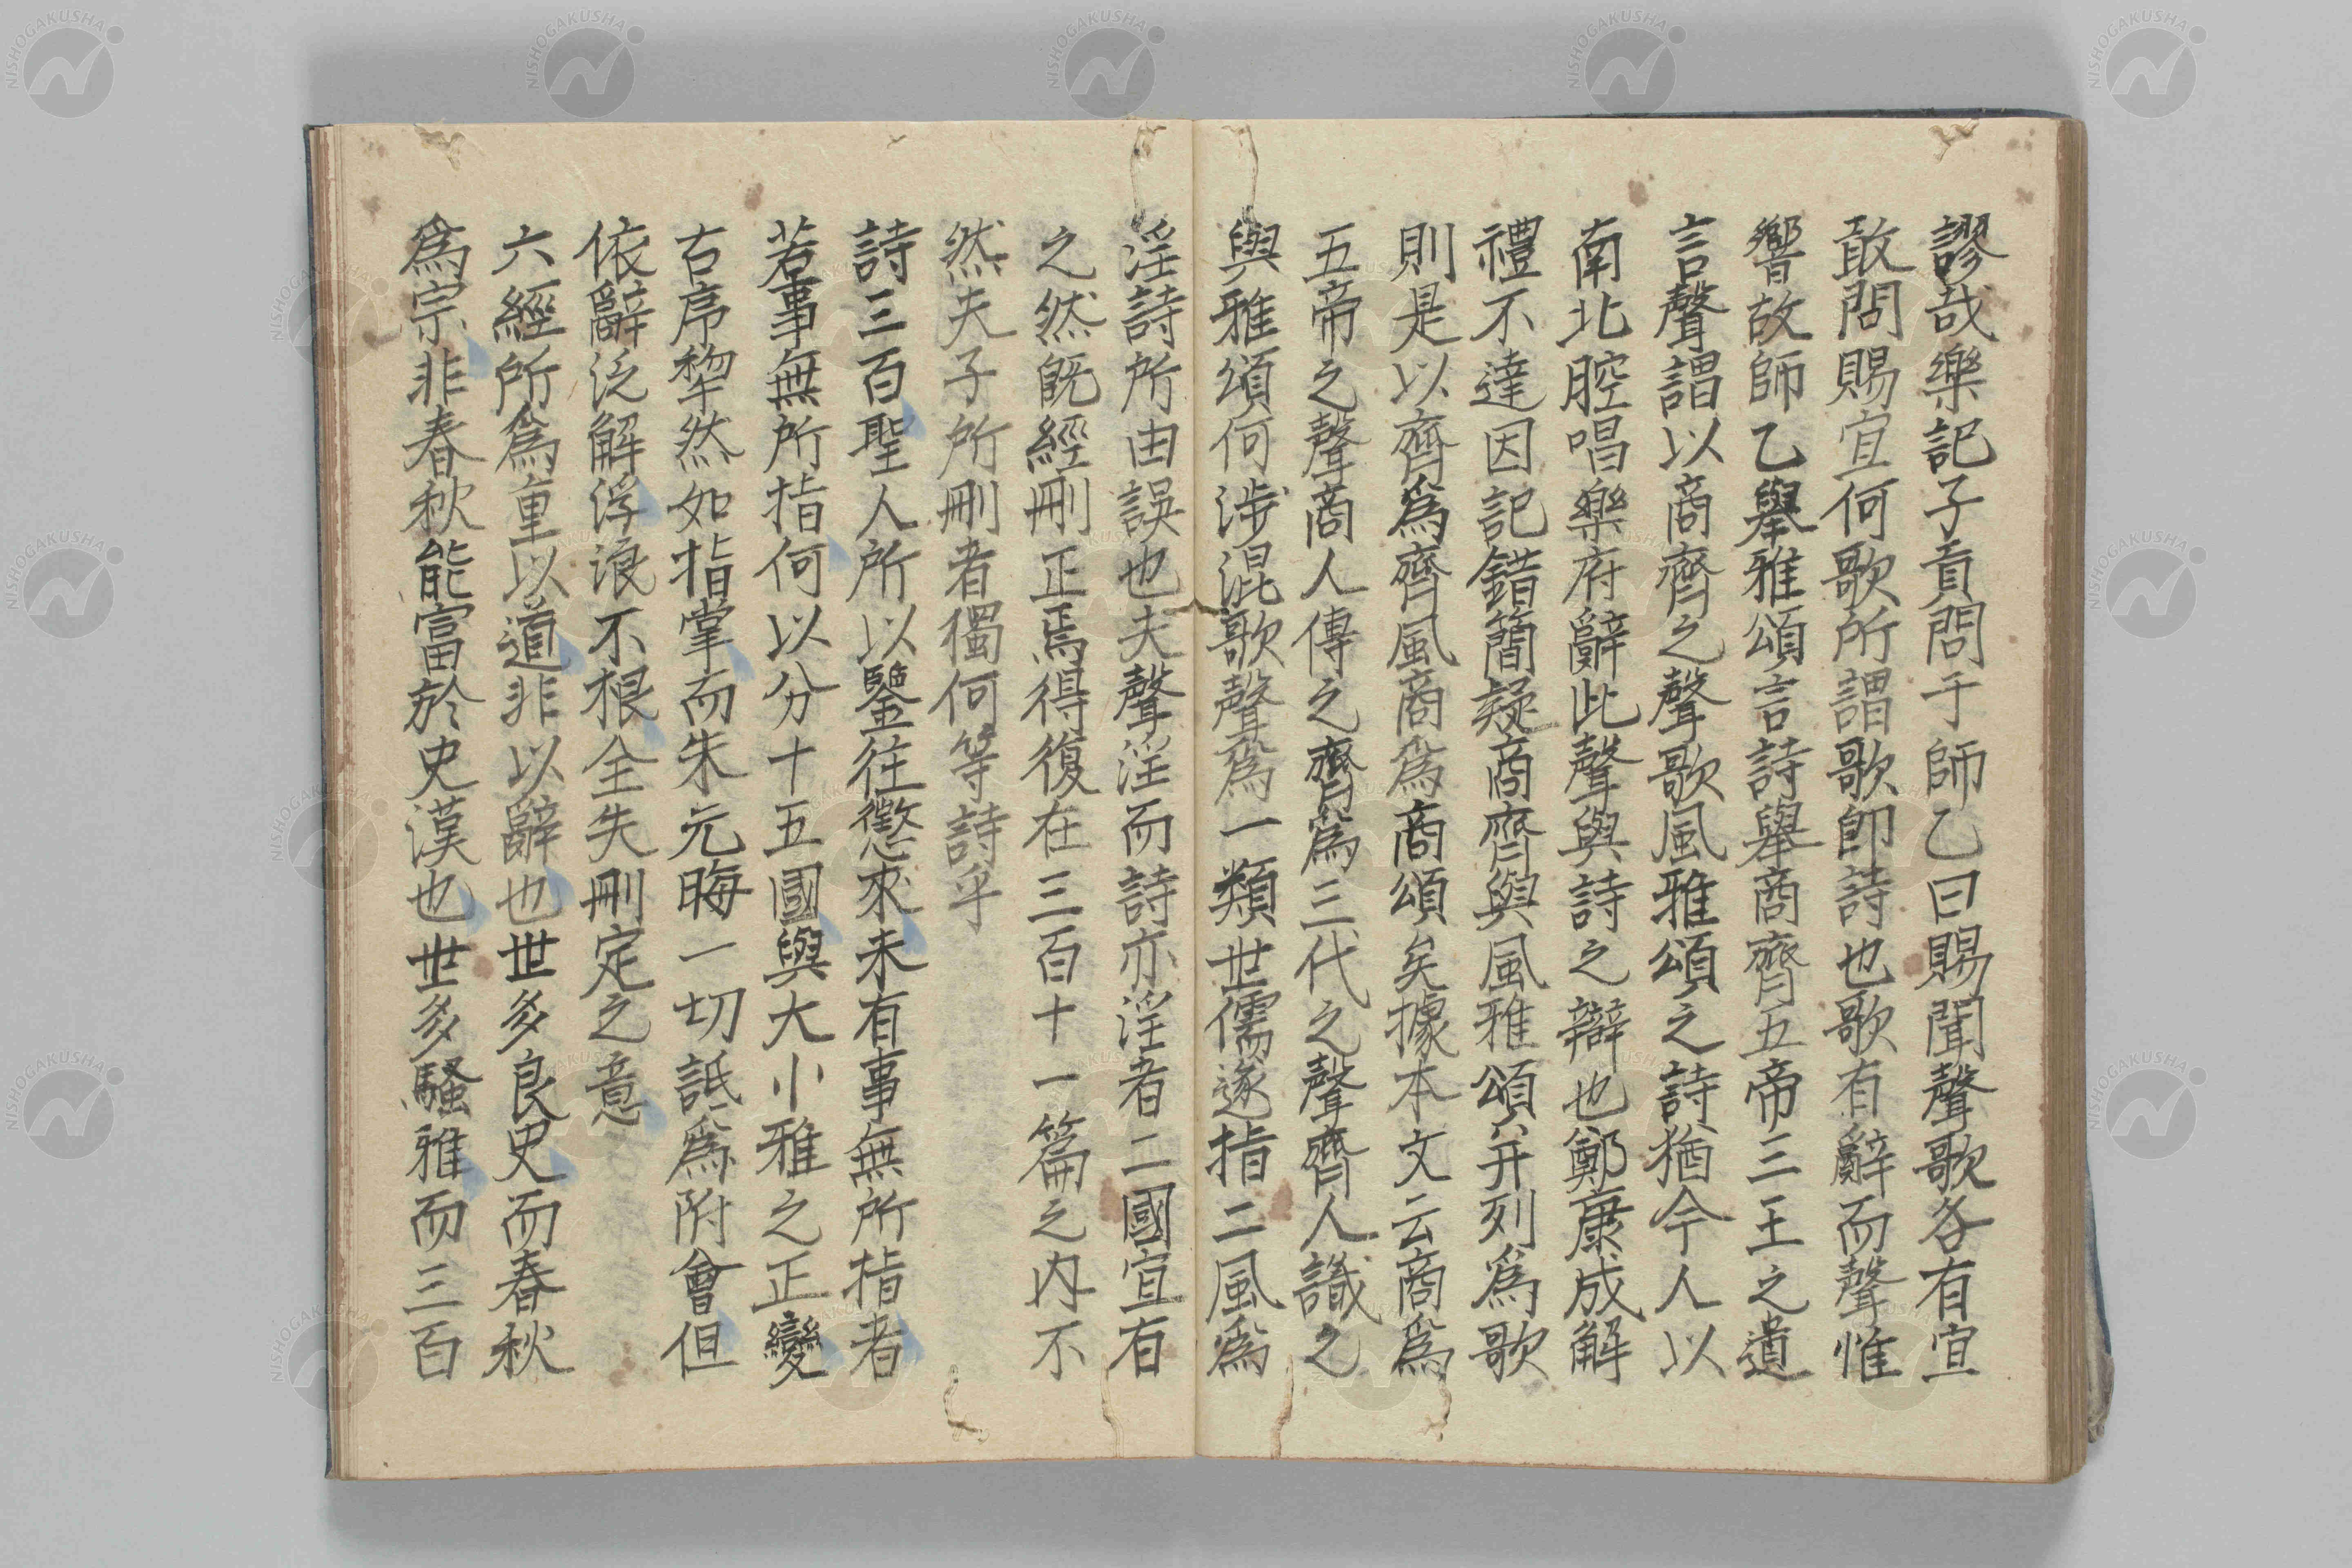 謬哉樂記子貢問于師乙曰賜聞聲歌各有宜
敢問賜宜何歌所謂歌即詩也歌有辭而聲惟
響故師乙舉雅頌言詩舉商齊五帝三王之遺
言聲謂以商齊之聲歌風雅頌之詩猶今人以
南北腔唱樂府辭此聲與詩之辯也鄭康成解
禮不達因記錯簡疑商齊與風雅頌并列為歌
則是以齊為齊風商為商頌矣據本文云商為
五帝之聲商人傳之齊為三代之聲齊人識之
與雅頌何涉混歌聲為一類世儒遂指二風為
淫詩所由誤也夫聲淫而詩亦淫者二國宜有
之然既經刪正焉得復在三百十一篇之内不
然夫子所刪者獨何等詩乎
詩三百聖人所以鑒往懲來未有事無所指者
若事無所指何以分十五國與大小雅之正變
古序犂然如指掌而朱元晦一切詆為附會但
依辭泛解浮浪不根全失刪定之意
六經所為重以道非以辭也世多良史而春秋
為宗非春秋能富於史漢也世多騷雅而三百
NISHOGAKUSHA